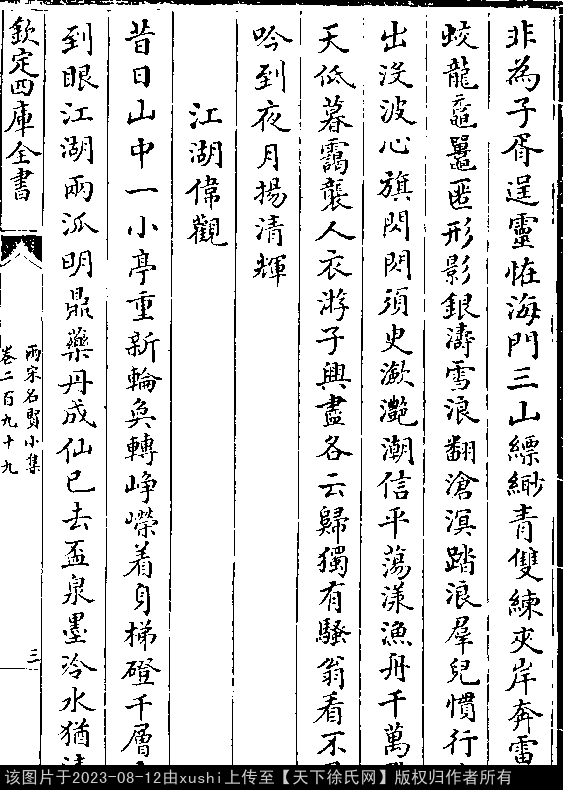 非為子胥逞靈恠海門三山縹緲青雙練夾岸奔雷
蛟龍黿鼉匿形影銀濤雪浪翻滄溟踏浪羣兒慣行
出没波心旗閃閃須臾潋灧潮信平蕩漾漁舟千萬
天低暮靄襲人衣游子興盡各云歸獨有騷翁看不
吟到夜月揚清輝
江湖偉觀
昔日山中一小亭重新輪奐轉崢嶸着身梯磴千層
到眼江湖兩派明鼎藥丹成仙已去盃泉墨冷水猶
欽定四庫全書
兩宋名賢小集
卷二百九十九
三
该图片于2023-08-12由xushi上传至【天下徐氏网】版权归作者所有